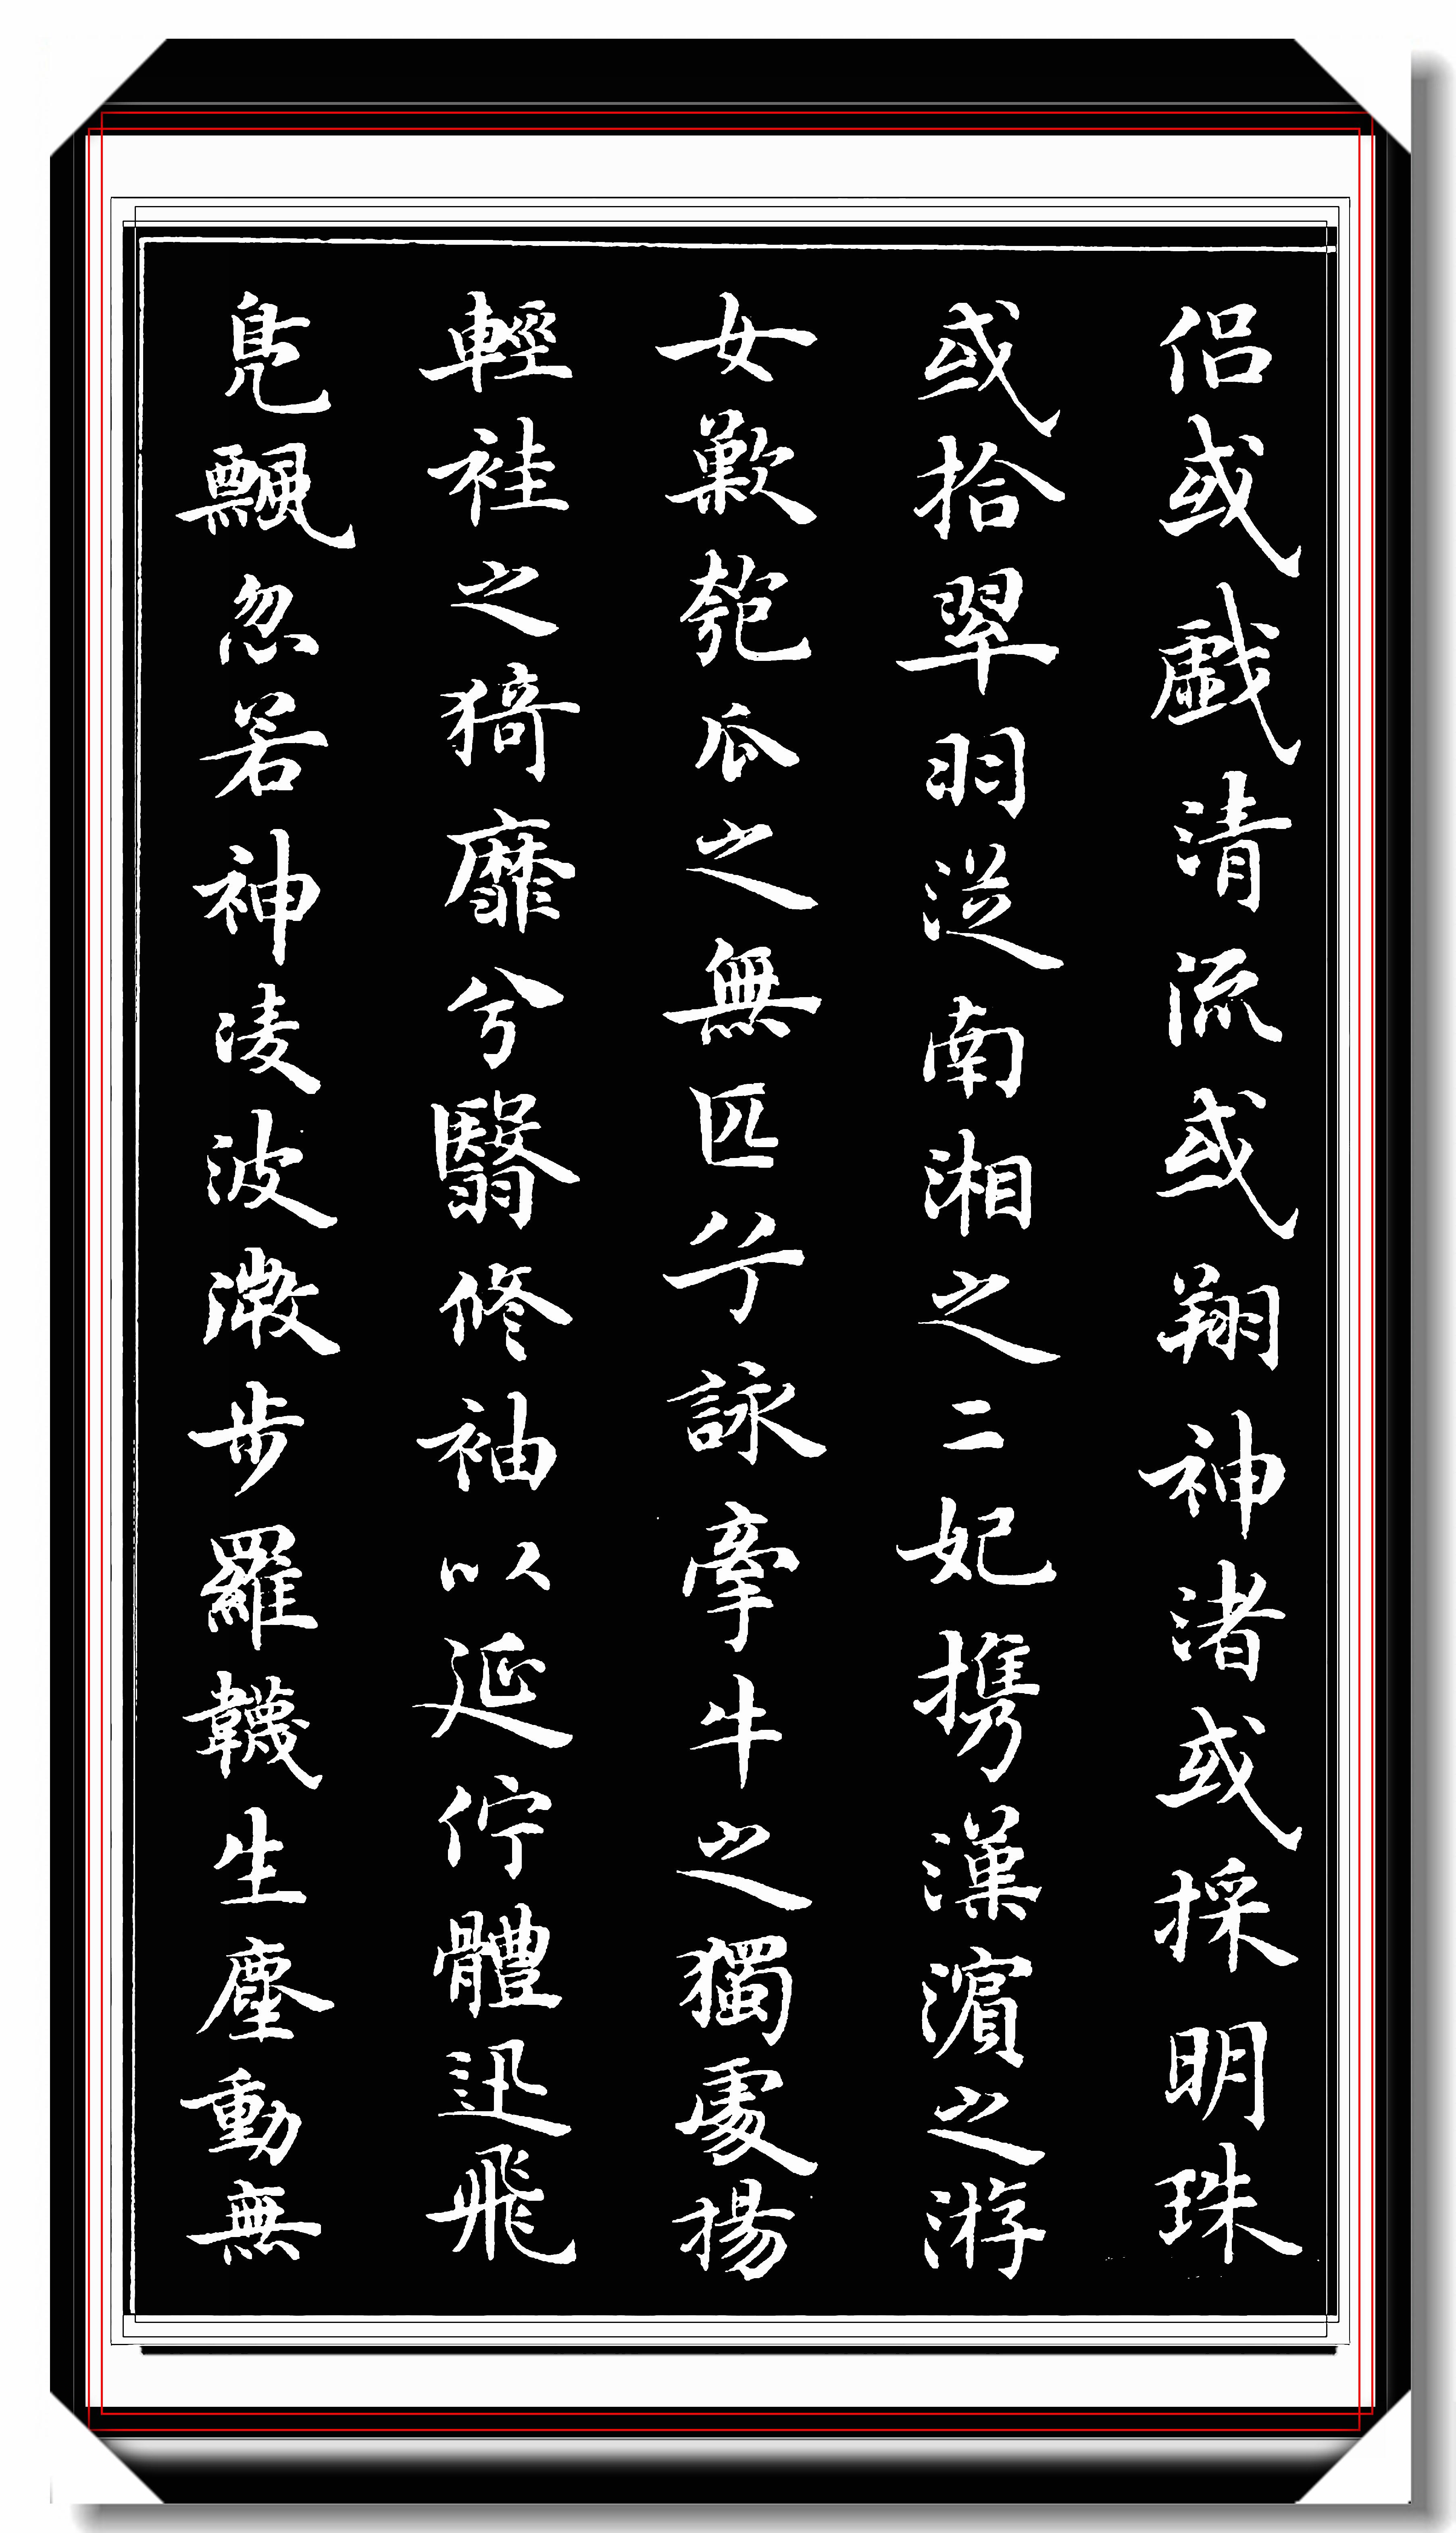 侣或戲清流或翔神渚或採明珠
或拾翠羽從南湘之二妃携漢濵之游
女歎匏瓜之無匹兮詠牽牛之獨處揚
輕袿之猗靡兮翳修袖以延佇體迅飛
鳧飄忽若神凌波微步羅韈生塵動無